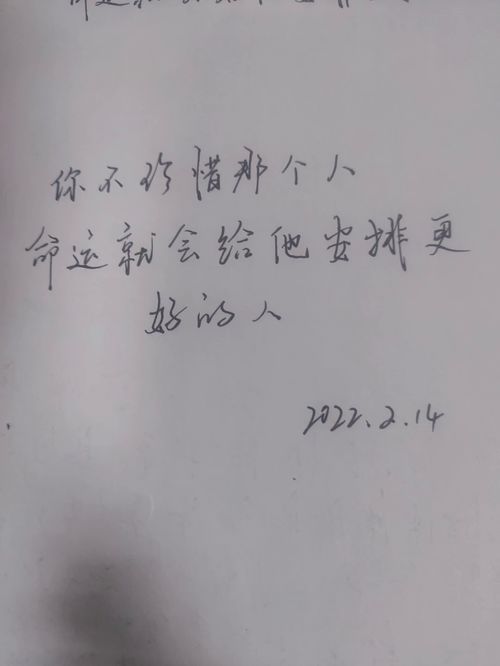 你不珍惜那个人
命运就会给他安排更
好的人
2022.2.14